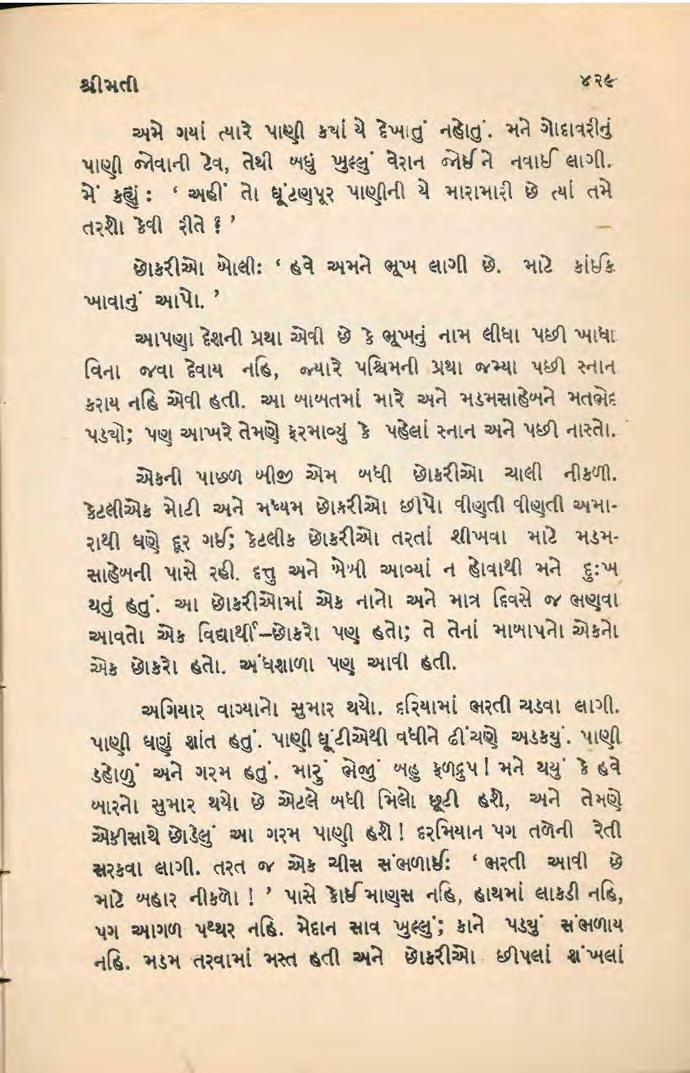 શ્રીમતી ૪૨૯
અમે ગયાં ત્યારે પાણી કયાં યે દેખાતું નહોતું. મને ગોદાવરીનું
પાણી જોવાની ટેવ, તેથી બધું ખુલ્લું વેરાન જોઈને નવાઈ લાગી.
મેં કહ્યું : ‘ અહીં તો ઘૂંટણપૂર પાણીની યે મારામારી છે ત્યાં તમે
તરશો કેવી રીતે ? ’
છોકરીઓ બોલી: ‘ હવે અમને ભૂખ લાગી છે. માટે કાંઈક
ખાવાનું આપો. ’
આપણા દેશની પ્રથા એવી છે કે ભૂખનું નામ લીધા પછી ખાધા
વિના જવા દેવાય નહિ, જ્યારે પશ્ચિમની પ્રથા જમ્યા પછી સ્નાન
કરાય નહિ એવી હતી. આ બાબતમાં મારે અને મડમસાહેબને મતભેદ
પડયો; પણ આખરે તેમણે ફરમાવ્યું કે પહેલાં સ્નાન અને પછી નાસ્તો.
એકની પાછળ બીજી એમ બધી છોકરીઓ ચાલી નીકળી.
કેટલીએક મોટી અને મધ્યમ છોકરીઓ છીપો વીણતી વીણતી અમા-
રાથી ઘણે દૂર ગઈ; કેટલીક છોકરીઓ તરતાં શીખવા માટે મડમ-
સાહેબની પાસે રહી. દત્તુ અને બેબી આવ્યાં ન હોવાથી મને દુઃખ
થતું હતું. આ છોકરીઓમાં એક નાનો અને માત્ર દિવસે જ ભણવા
આવતો એક વિદ્યાર્થી–છોકરો પણ હતો; તે તેનાં માબાપનો એકનો
એક છોકરો હતો. અંધશાળા પણ આવી હતી.
અગિયાર વાગ્યાનો સુમાર થયો. દરિયામાં ભરતી ચડવા લાગી.
પાણી ઘણું શાંત હતું. પાણી ઘૂંટીએથી વધીને ઢીંચણે અડકયું. પાણી
ડહોળું અને ગરમ હતું. મારું ભેજું બહુ ફળદ્રુપ! મને થયું કે હવે
બારનો સુમાર થયો છે એટલે બધી મિલો છૂટી હશે, અને તેમણે
એકીસાથે છોડેલું આ ગરમ પાણી હશે! દરમિયાન પગ તળેની રેતી
સરકવા લાગી. તરત જ એક ચીસ સંભળાઈ: ‘ ભરતી આવી છે
માટે બહાર નીકળો ! ’ પાસે કોઈ માણસ નહિ, હાથમાં લાકડી નહિ,
પગ આગળ પથ્થર નહિ. મેદાન સાવ ખુલ્લું; કાને પડયું સંભળાય
નહિ. મડમ તરવામાં મસ્ત હતી અને છોકરીઓ છીપલાં શંખલાં